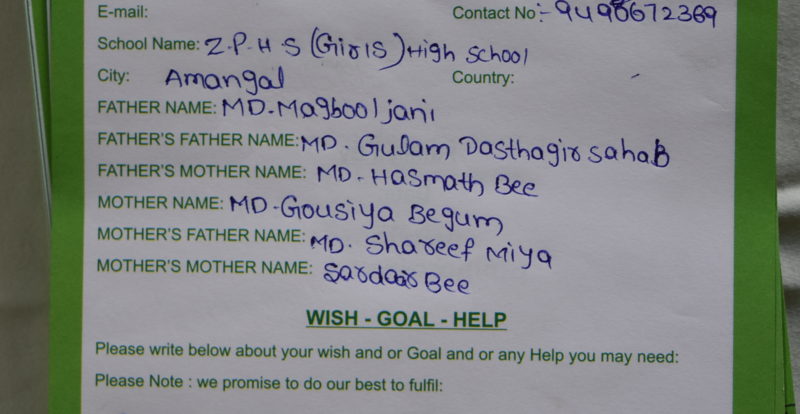 E-mail:
Contact No:- 9490672369
School Name: Z.P.H.S (Girls) High School
City: Amangal Country: -
FATHER NAME: MD. Magbool jani
FATHER'S FATHER NAME: MD. Gulam Dasthagir sahaB
FATHER'S MOTHER NAME: MD. Hasmath Bee
MOTHER NAME: MD. Gousiya Begum
MOTHER'S FATHER NAME: MD. Shareef Miya
MOTHER'S MOTHER NAME: Sardaar Bee
WISH - GOAL - HELP
Please write below about your wish and or Goal and or any Help you may need:
Please Note : we promise to do our best to fulfil: